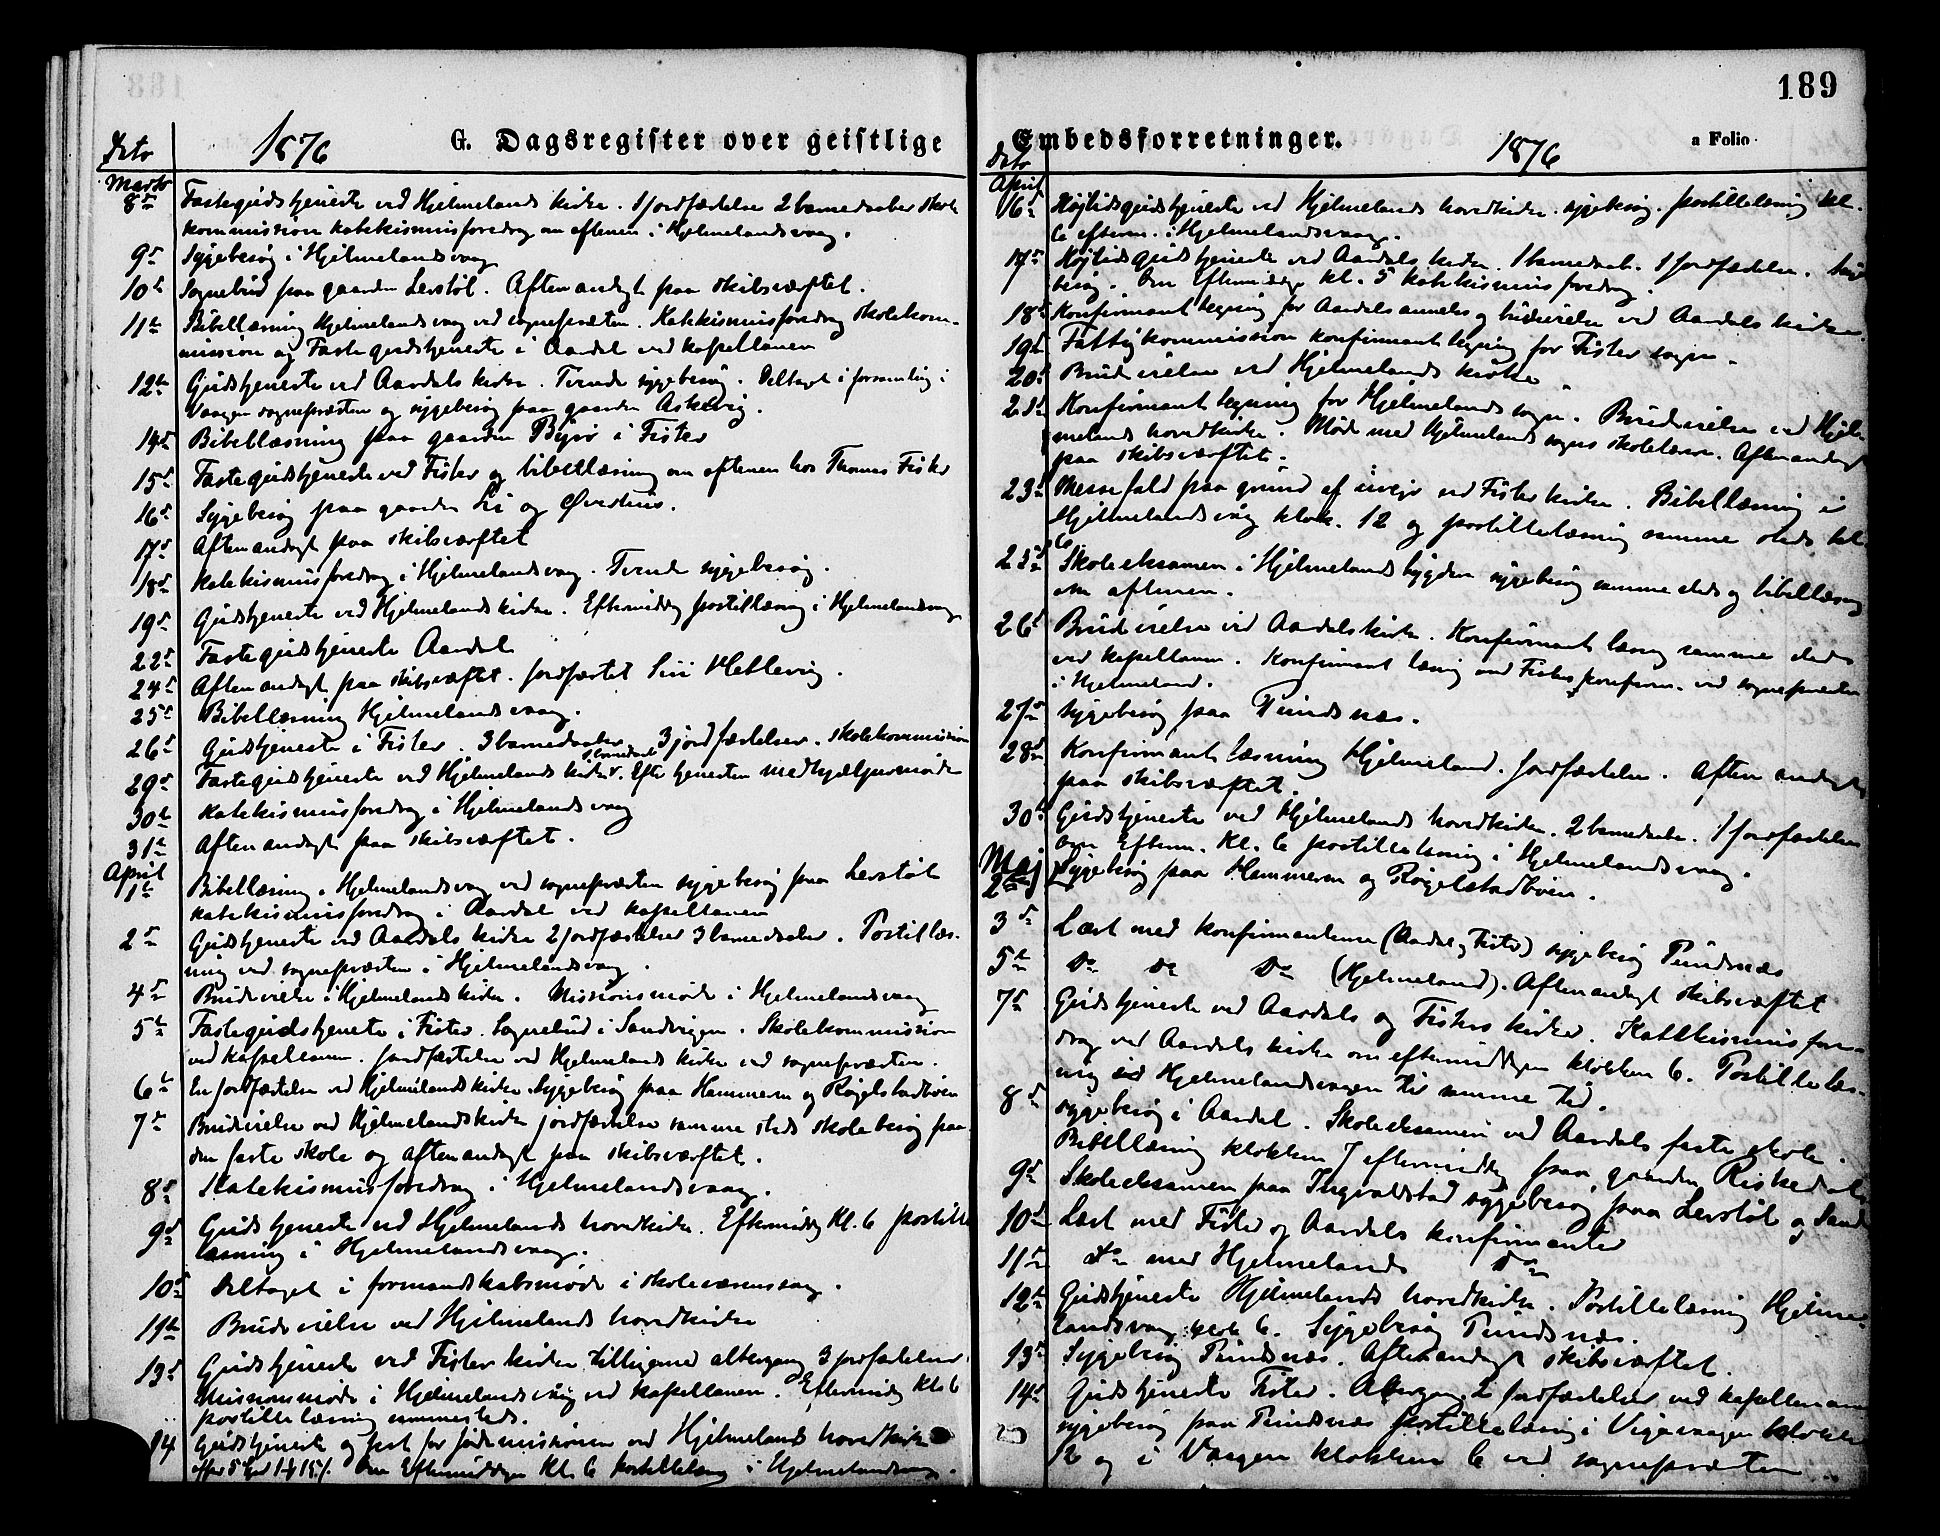 189
G. Dagsregister over geistlige
Embedsforretninger.
a Folio
Dato
1876
Marts
8de Fastegudstjeneste ved Hjelmelands kirke. 1 jordfæstelse 2 barnedaaber skole
kommission katekismusforedrag om aftenen i Hjelmelandsvaag.
9de Sygebesøg i Hjelmelandsvaag
10de Sognebud paa gaarden Levstøl. Aftenandagt paa skibsværftet.
11te Bibellæsning Hjelmelandsvaag ved sognepræsten. Katekismusforedrag skolekom-
mission og Fastegudstjeneste i Aardal ved kapellanen
12te Gudstjeneste ved Aardals kirke. Tvende sygebesøg. Deltaget i forsamling i
Vaagen sognepræsten og sygebesøg paa gaarden Askvig.
14de Bibellæsning paa gaarden Byrø i Fister
15de Fastegudstjeneste ved Fister og bibellæsning om aftenen hos Thomas Fister
16de Sygebesøg paa gaarden Li og
17de Aftenandagt paa skibsværftet
18de Katekismusforedrag i Hjelmelandsvaag. Tvende sygebesøg.
19de Gudstjeneste ved Hjelmelands kirke. Eftermiddag postillæsning i Hjelmelandsvaag
22de Fastegudstjeneste Aardal
24de Aftenandagt paa skibsværftet. Jordfæstet Siri
25de Bibellæsning Hjelmelandsvaag.
26de Gudstjeneste i Fister. 3 barnedaaber 3 jordfæstelser. skolekommission
29de Fastegudstjeneste ved Hjelmelands kirke. Efter tjenesten medhjælpermøde
30te Katekismusforedrag i Hjelmelandsvaag
31te Aftenandagt paa skibsværftet.
April
1te Bibellæsning i Hjelmelandsvaag ved sognepræsten sygebesøg paa Levstøl
katekismusforedrag i Aardal ved kapellanen
2de Gudstjeneste ved Aardals kirke 2 jordfæstelser 3 barnedaaber. Postillæs-
ning ved sognepræsten i Hjelmelandsvaag.
4de Brudevielse i Hjelmelands kirke. Missionsmøde i Hjelmelandsvaag
5te Fastegudstjeneste i Fister. Sognebud i Sandvigen. Skolekommission
ved kapellanen. Jordfæstelse ved Hjelmelands kirke ved sognepræsten.
6te En jordfæstelse ved Hjelmelands kirke. Sygebesøg paa Hammeren og Røgelstadbøen
7de Brudevielse ved Hjelmelands kirke jordfæstelse samme steds skolebesøg paa
den faste skole og Aftenandagt paa skibsværftet.
8de Katekismusforedrag i Hjelmelandsvaag.
9de Gudstjeneste ved Hjelmelands hovedkirke. Eftermiddag Kl. 6 postille
læsning i Hjelmelandsvaag.
10de Deltaget i formandskabsmøde i
Brudevielse ved Hjelmelands hovedkirke
13de Gudstjeneste ved Fister kirke tilligemed altergang 3 jordfæstelser.
Missionsmøde i Hjelmelandsvaag ved kapellanen. Eftermiddag Kl. 6
postillelæsning sammesteds.
14 Gudstjeneste og fest for jødemissionen ved Hjelmelands hovedkirke
Om Eftermiddagen Kl. 6 postillelæsning i Hjelmelandsvaag.
Dato
1876
April
16de Højtidsgudstjeneste ved Hjelmelands hovedkirke. sygebesøg. Postillelæsning kl.
6 efterm. i Hjelmelandsvaag.
17de Højtidsgudstjeneste ved Aardals kirke. 1 barnedaab. 1 jordfæstelse. Syge
besøg. Om Eftermiddag kl. 5 katekismusforedrag.
18de Konfirmantlæsning for Aardals annex og brudevielse ved Aardals kirke
19de Fattigkommission konfirmantlæsning for Fister sogn.
20de Brudevielse ved Hjelmelands kirke.
21de Konfirmantlæsning for Hjelmelands sogn. Brudevielse ved Hjel-
melands hovedkirke. Møde med Hjelmelands sogns skolelærere. Aftenandagt
paa skibsværftet.
23de Messefald paa grund af uvejr ved Fister kirke. Bibellæsning i
Hjelmelandsvaag klok. 12 og postillelæsning samme steds kl.
6
25de Skoleeksamen i Hjelmelandsbygden sygebesøg samme steds og bibellæsning
om aftenen.
26de Brudevielse ved Aardals kirke. Konfirmantlæsning samme steds
ved kapellanen. Konfirmantlæsning med Fisters konfirm. ved sognepræsten
i Hjelmeland.
27de Sygebesøg paa Pundsnæs.
28de Konfirmantlæsning Hjelmeland. Jordfæstelse. Aftenandagt
paa skibsværftet.
30te Gudstjeneste ved Hjelmelands hovedkirke. 2 barnedaabe. 1 jordfæstelse
Efterm. Kl. 6 postillelæsning i Hjelmelandsvaag.
Maj
2den Sygebesøg paa Hammeren og Røgelstadbøen.
3de Læst med konfirmanterne (Aardal og Fister) sygebesøg Pundsnæs
5te Do Do Do (Hjelmeland). Aftenandagt skibsværftet
7de Gudstjeneste ved Aardals og Fisters kirke. Katekismusfore-
drag ved Aardals kirke om eftermiddagen klokken 6. Postillelæs-
ning ved Hjelmelandsvaagen til samme tid.
8de Sygebesøg i Aardal. Skoleeksamen ved Aardals faste skole.
Bibellæsning klokken 7 eftermiddag paa gaarden Riskedal
9de Skoleeksamen paa Ingvaldstad sygebesøg paa Levstøl og Sand
10de Læst med Fister og Aardals konfirmanter
11te Do med Hjelmelands Do
12te Gudstjeneste Hjelmelands hovedkirke. Postillelæsning Hjelme-
landsvaag klok 6. Sygebesøg Pundsnæs.
13de Sygebesøg Pundsnæs. Aftenandagt skibsværftet.
14de Gudstjeneste Fister. Altergang. 2 jordfæstelser ved kapellanen
sygebesøg paa Pundsnæs postillelæsning i Vigevaagen klokken
12 og i Vaagen klokken 6 ved sognepræsten